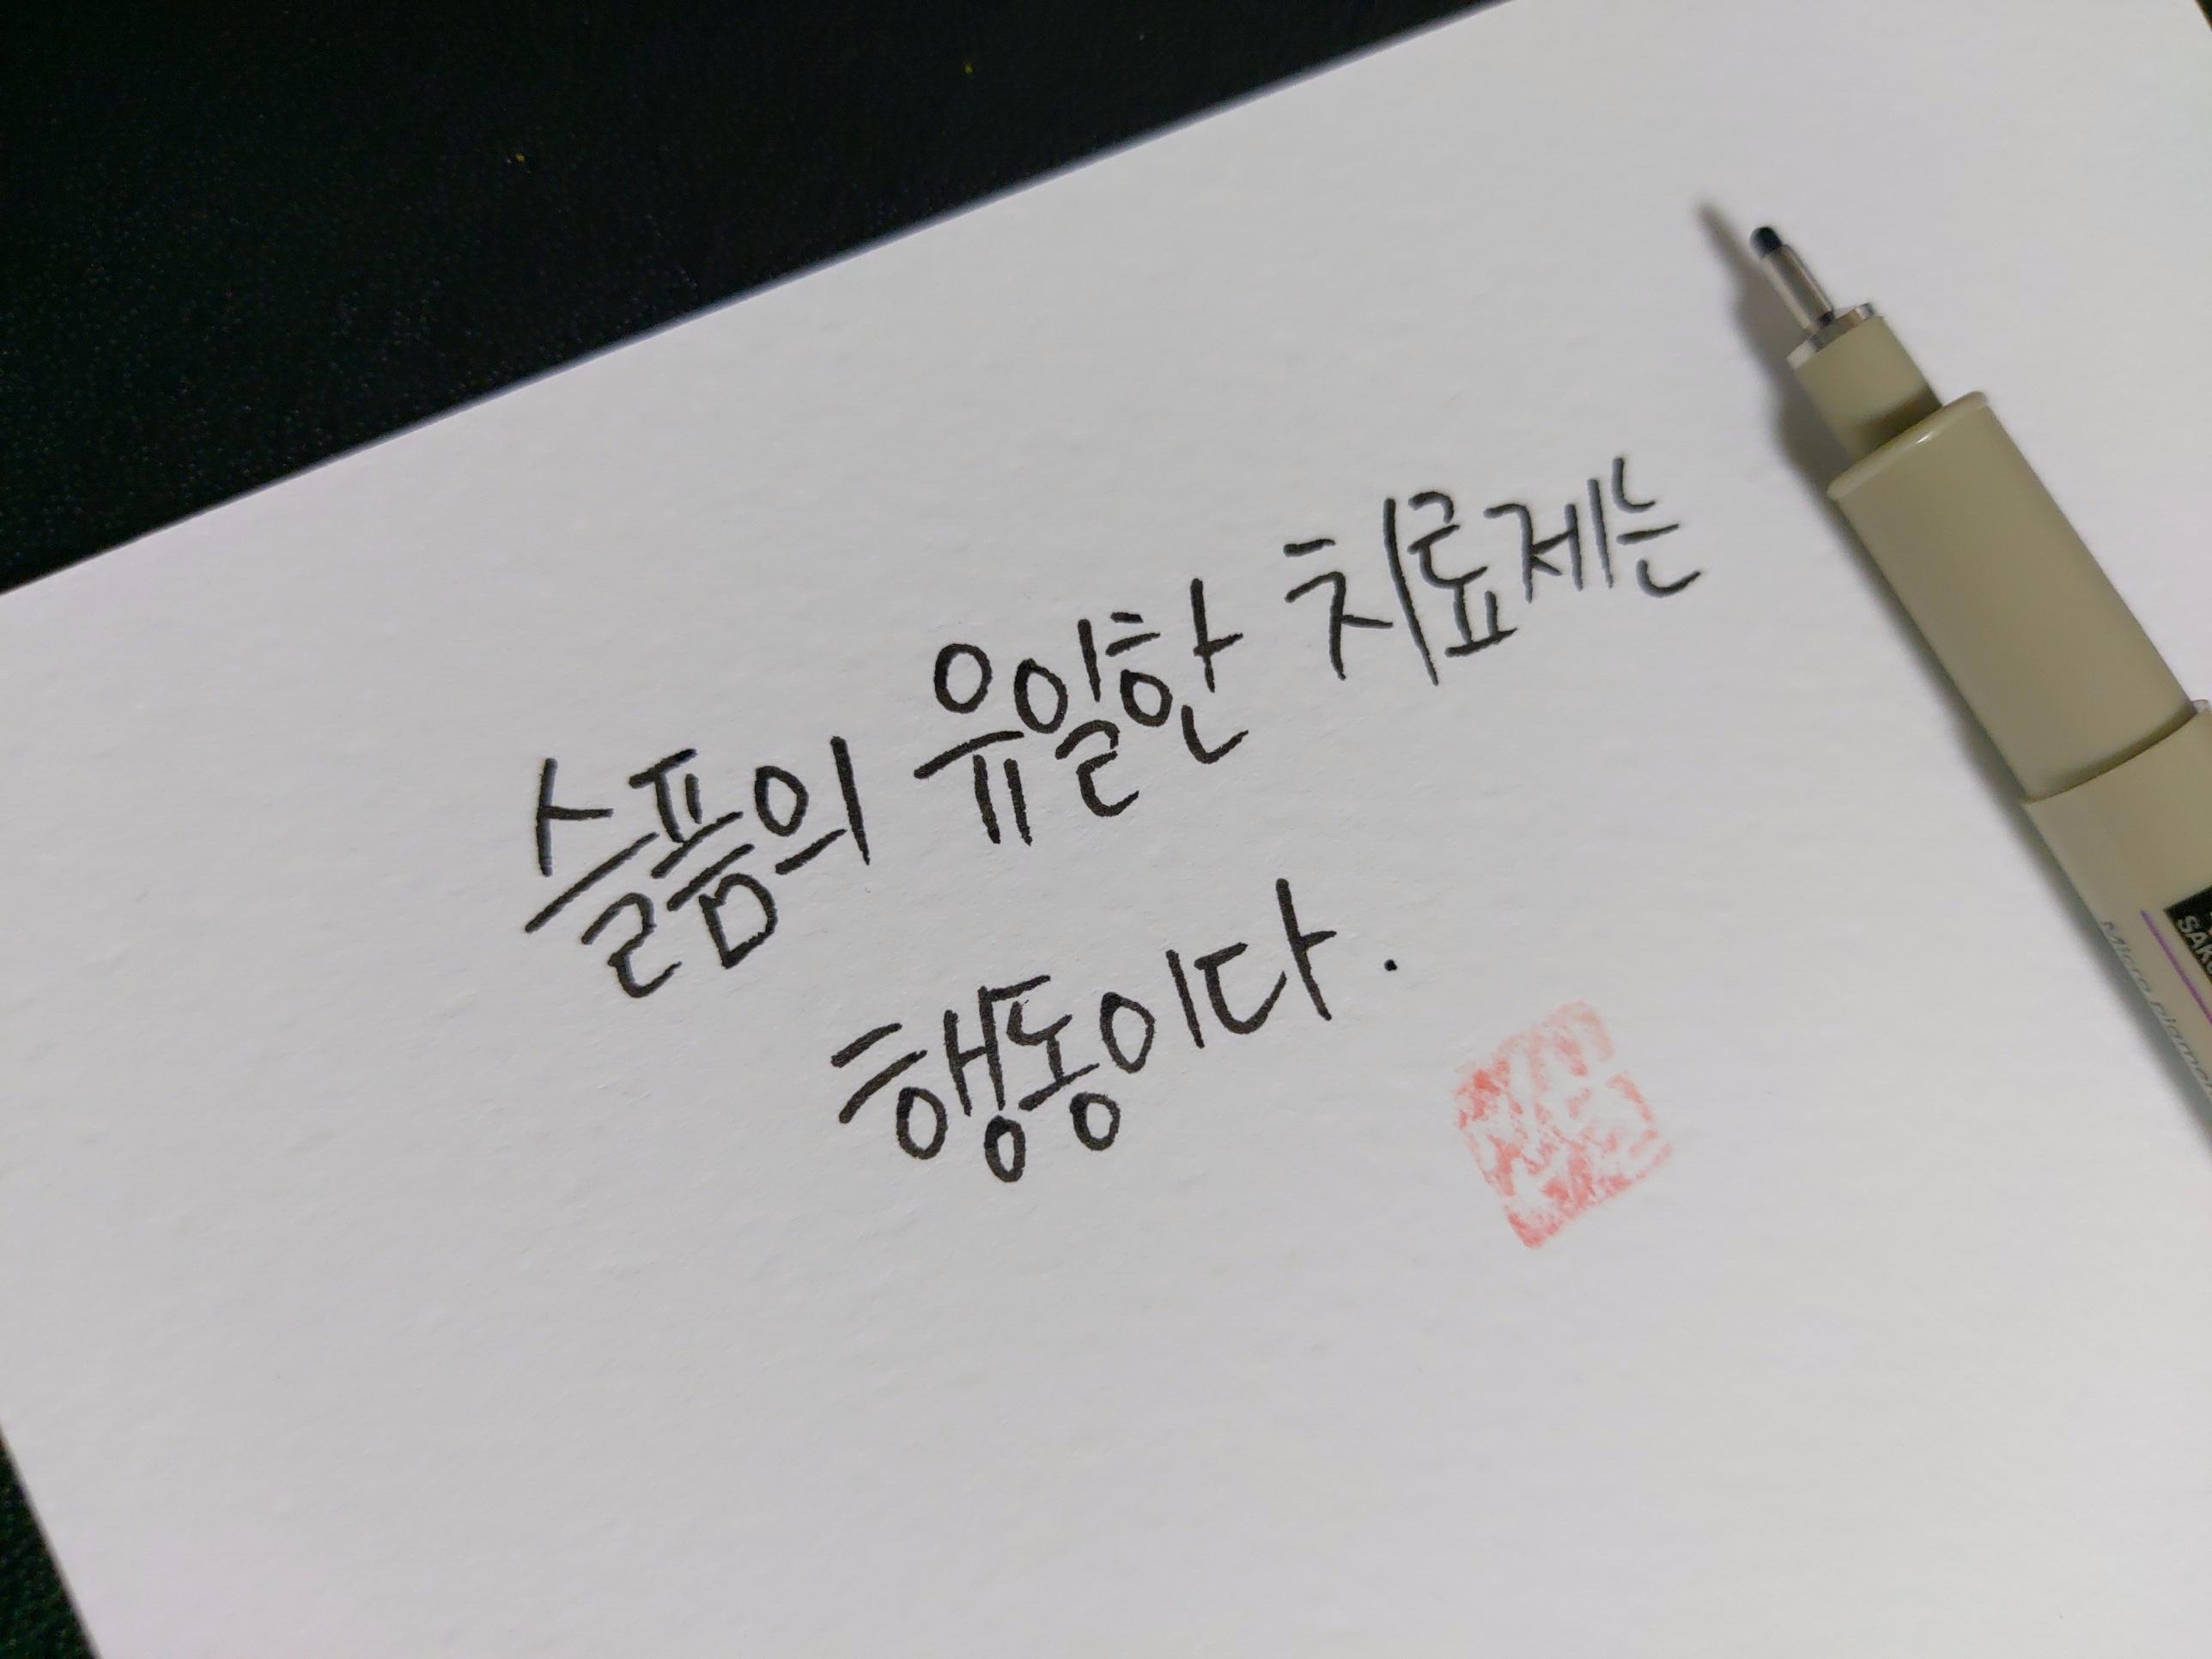 슬픔의 유일한 치료제는
행동이다.